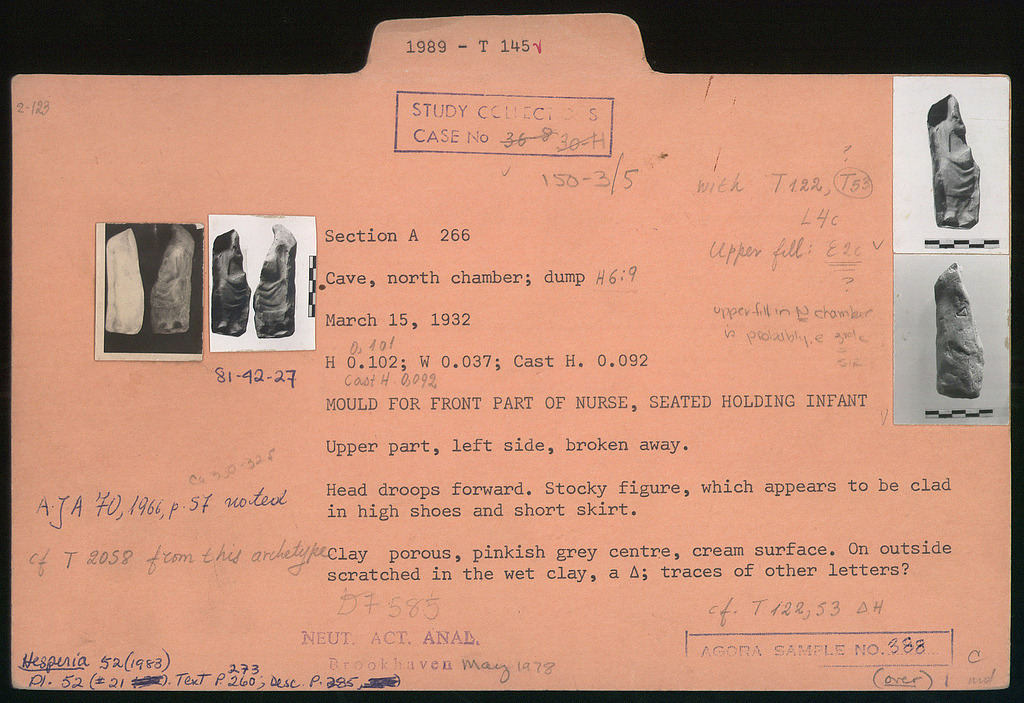 1989 - T 145
2-123
STUDY COLLECTIONS
CASE No 36-8 30-H
150-3/5
with T122, T53
L4c
?
Upper fill: E2c
?
upper fill in N chamber
is probably e
Section A 266
Cave, north chamber; dump H6:9
March 15, 1932
0,101
H 0.102; W 0.037; Cast H. 0.092
Cast H 0,092
81-42-27
MOULD FOR FRONT PART OF NURSE, SEATED HOLDING INFANT
Upper part, left side, broken away.
Ca 350-325
A.J A 70, 1966, p. 57 noted
Head droops forward. Stocky figure, which appears to be clad
in high shoes and short skirt.
cf T 2058 from this archetype
Clay porous, pinkish grey centre, cream surface. On outside
scratched in the wet clay, a Δ; traces of other letters?
DF 585
cf. T 122, 53 ΔH
NEUT. ACT. ANAL.
Brookhaven May 1978
AGORA SAMPLE NO. 388
C
(over) 1 md
Hesperia 52 (1983)
273
Pl. 52 (#21). Text P. 260; Desc. P. 285,